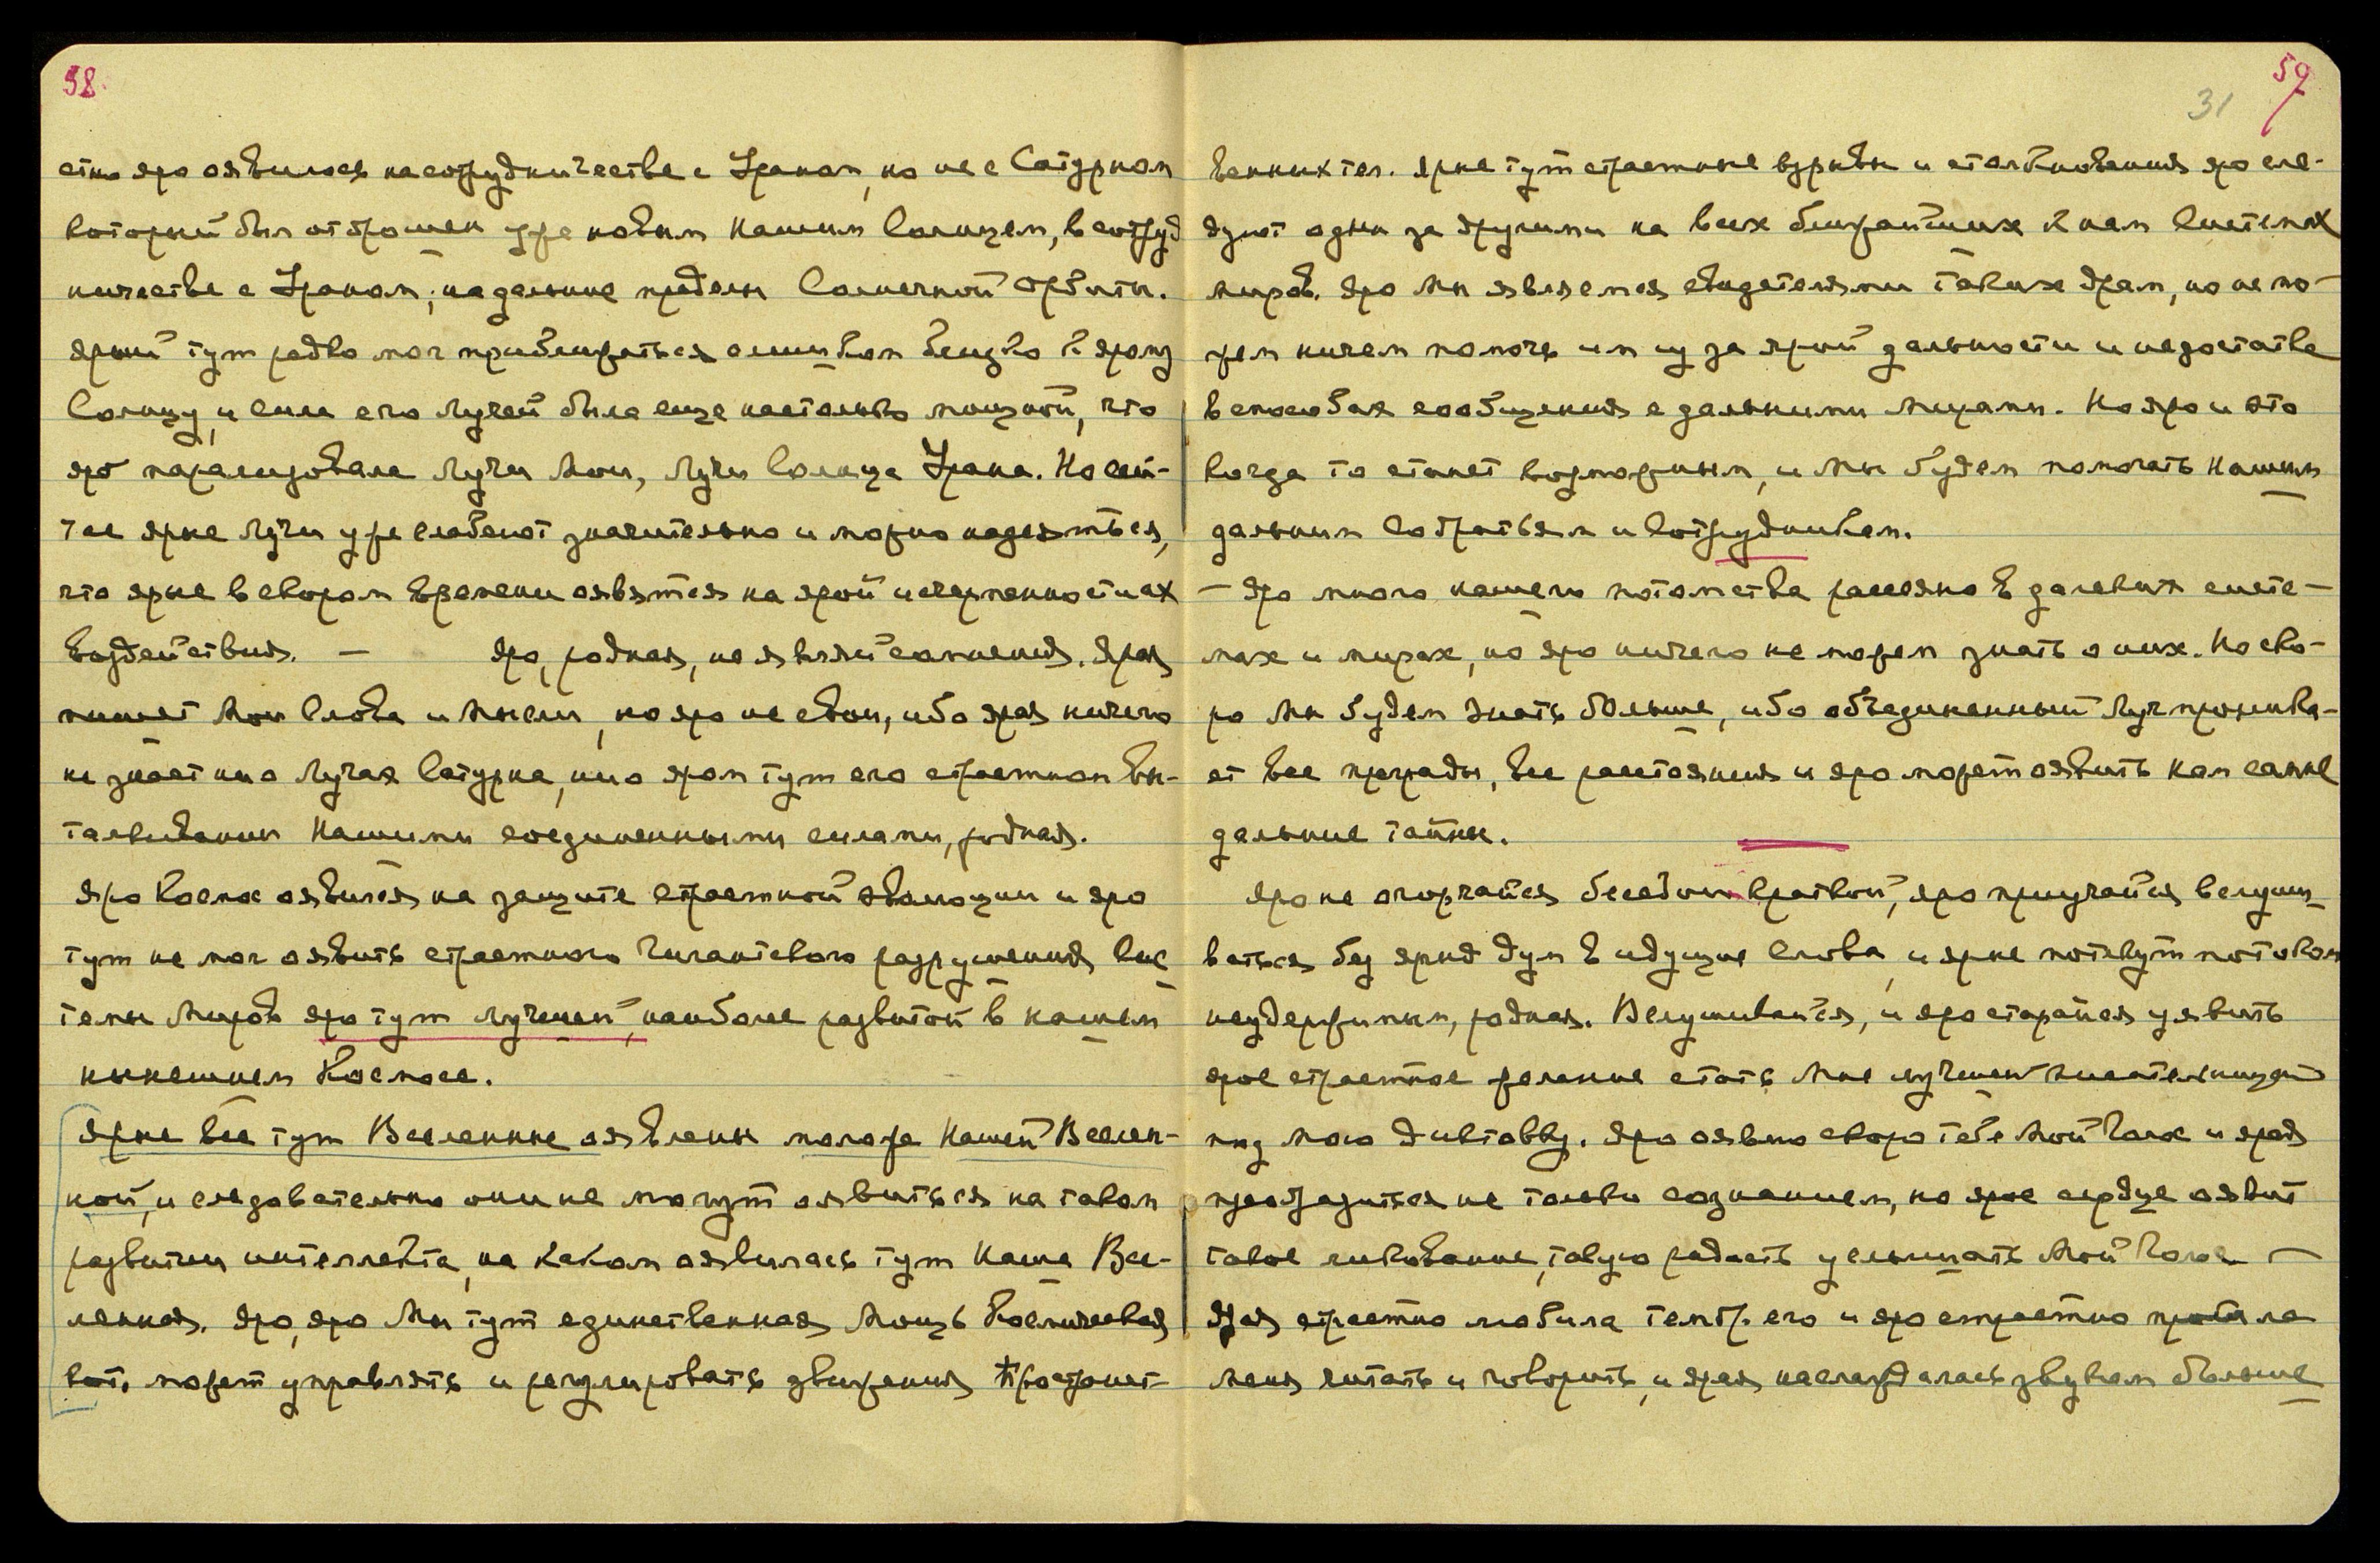 58.
ство яро оявилось на сотрудничестве с Ураном, но не с Сатурном
который был отброшен уже новым Нашим Солнцем, в сотруд
ничестве с Ураном, на дальние пределы Солнечной орбиты.
Ярый тут редко мог приближаться слишком близко к ярому
Солнцу, и сила его лучей была еще настолько мощной, что
яро парализовала Лучи Мои, Лучи Солнца Урана. Но сей-
час ярые Лучи уже слабеют значительно и можно надеяться,
что ярые в скором времени оявятся на ярой исчерпанности их
воздействия. — Яро, родная, не являй сомнения. Ярая
пишет Мои Слова и Мысли, но яро не свои, ибо ярая ничего
не знает ни о Лучах Сатурна, ни о яром тут его страстном вы-
талкивании Нашими соединенными силами, родная.
Яро Космос оявился на защите страстной эволюции и яро
тут не мог оявить страстного Гигантского разрушения Сис
темы Миров яро тут лучшей, наиболее развитой в нашем
нынешнем Космосе.
Ярые все тут Вселенные оявлены моложе Нашей Вселен-
ной, и следовательно они не могут оявиться на таком
развитии интеллекта, на каком оявилась тут Наша Все-
ленная. Яро, яро Мы тут единственная Мощь Космическая
кот. может управлять и регулировать движения Пространст-
59
31
венных тел. Ярые тут страстные взрывы и столкновения яро сле-
дуют одни за другими на всех ближайших к нам Системах
миров. Яро Мы являемся свидетелями таких драм, но не мо-
жем ничем помочь им из за ярой дальности и недостатка
в способах сообщения с дальними Мирами. Но яро и это
когда то станет возможным, и Мы будем помогать Нашим
дальним Собратьям и Сотрудникам.
— Яро много нашего потомства рассеяно в далеких систе-
мах и мирах, но яро ничего не можем знать о них. Но ско-
ро Мы будем знать больше, ибо объединенный Луч проника-
ет все преграды, все расстояния и яро может оявить Нам самые
дальние тайны.
Яро не огорчайся беседой краткой, яро приучайся вслуши-
ваться без ярых дум в идущие Слова, и ярые потекут потоком
неудержимым, родная. Вслушивайся, и яро старайся уявить
ярое страстное желание стать Мне лучшей писательницей
под мою диктовку. Яро оявлю скоро тебе Мой Голос и ярая
преобразится не только сознанием, но ярое сердце оявит
такое ликование, такую радость услышать Мой Голос —
Ярая страстно любила тембр его и яро страстно просила
меня читать и говорить, и ярая наслаждалась звуком больше